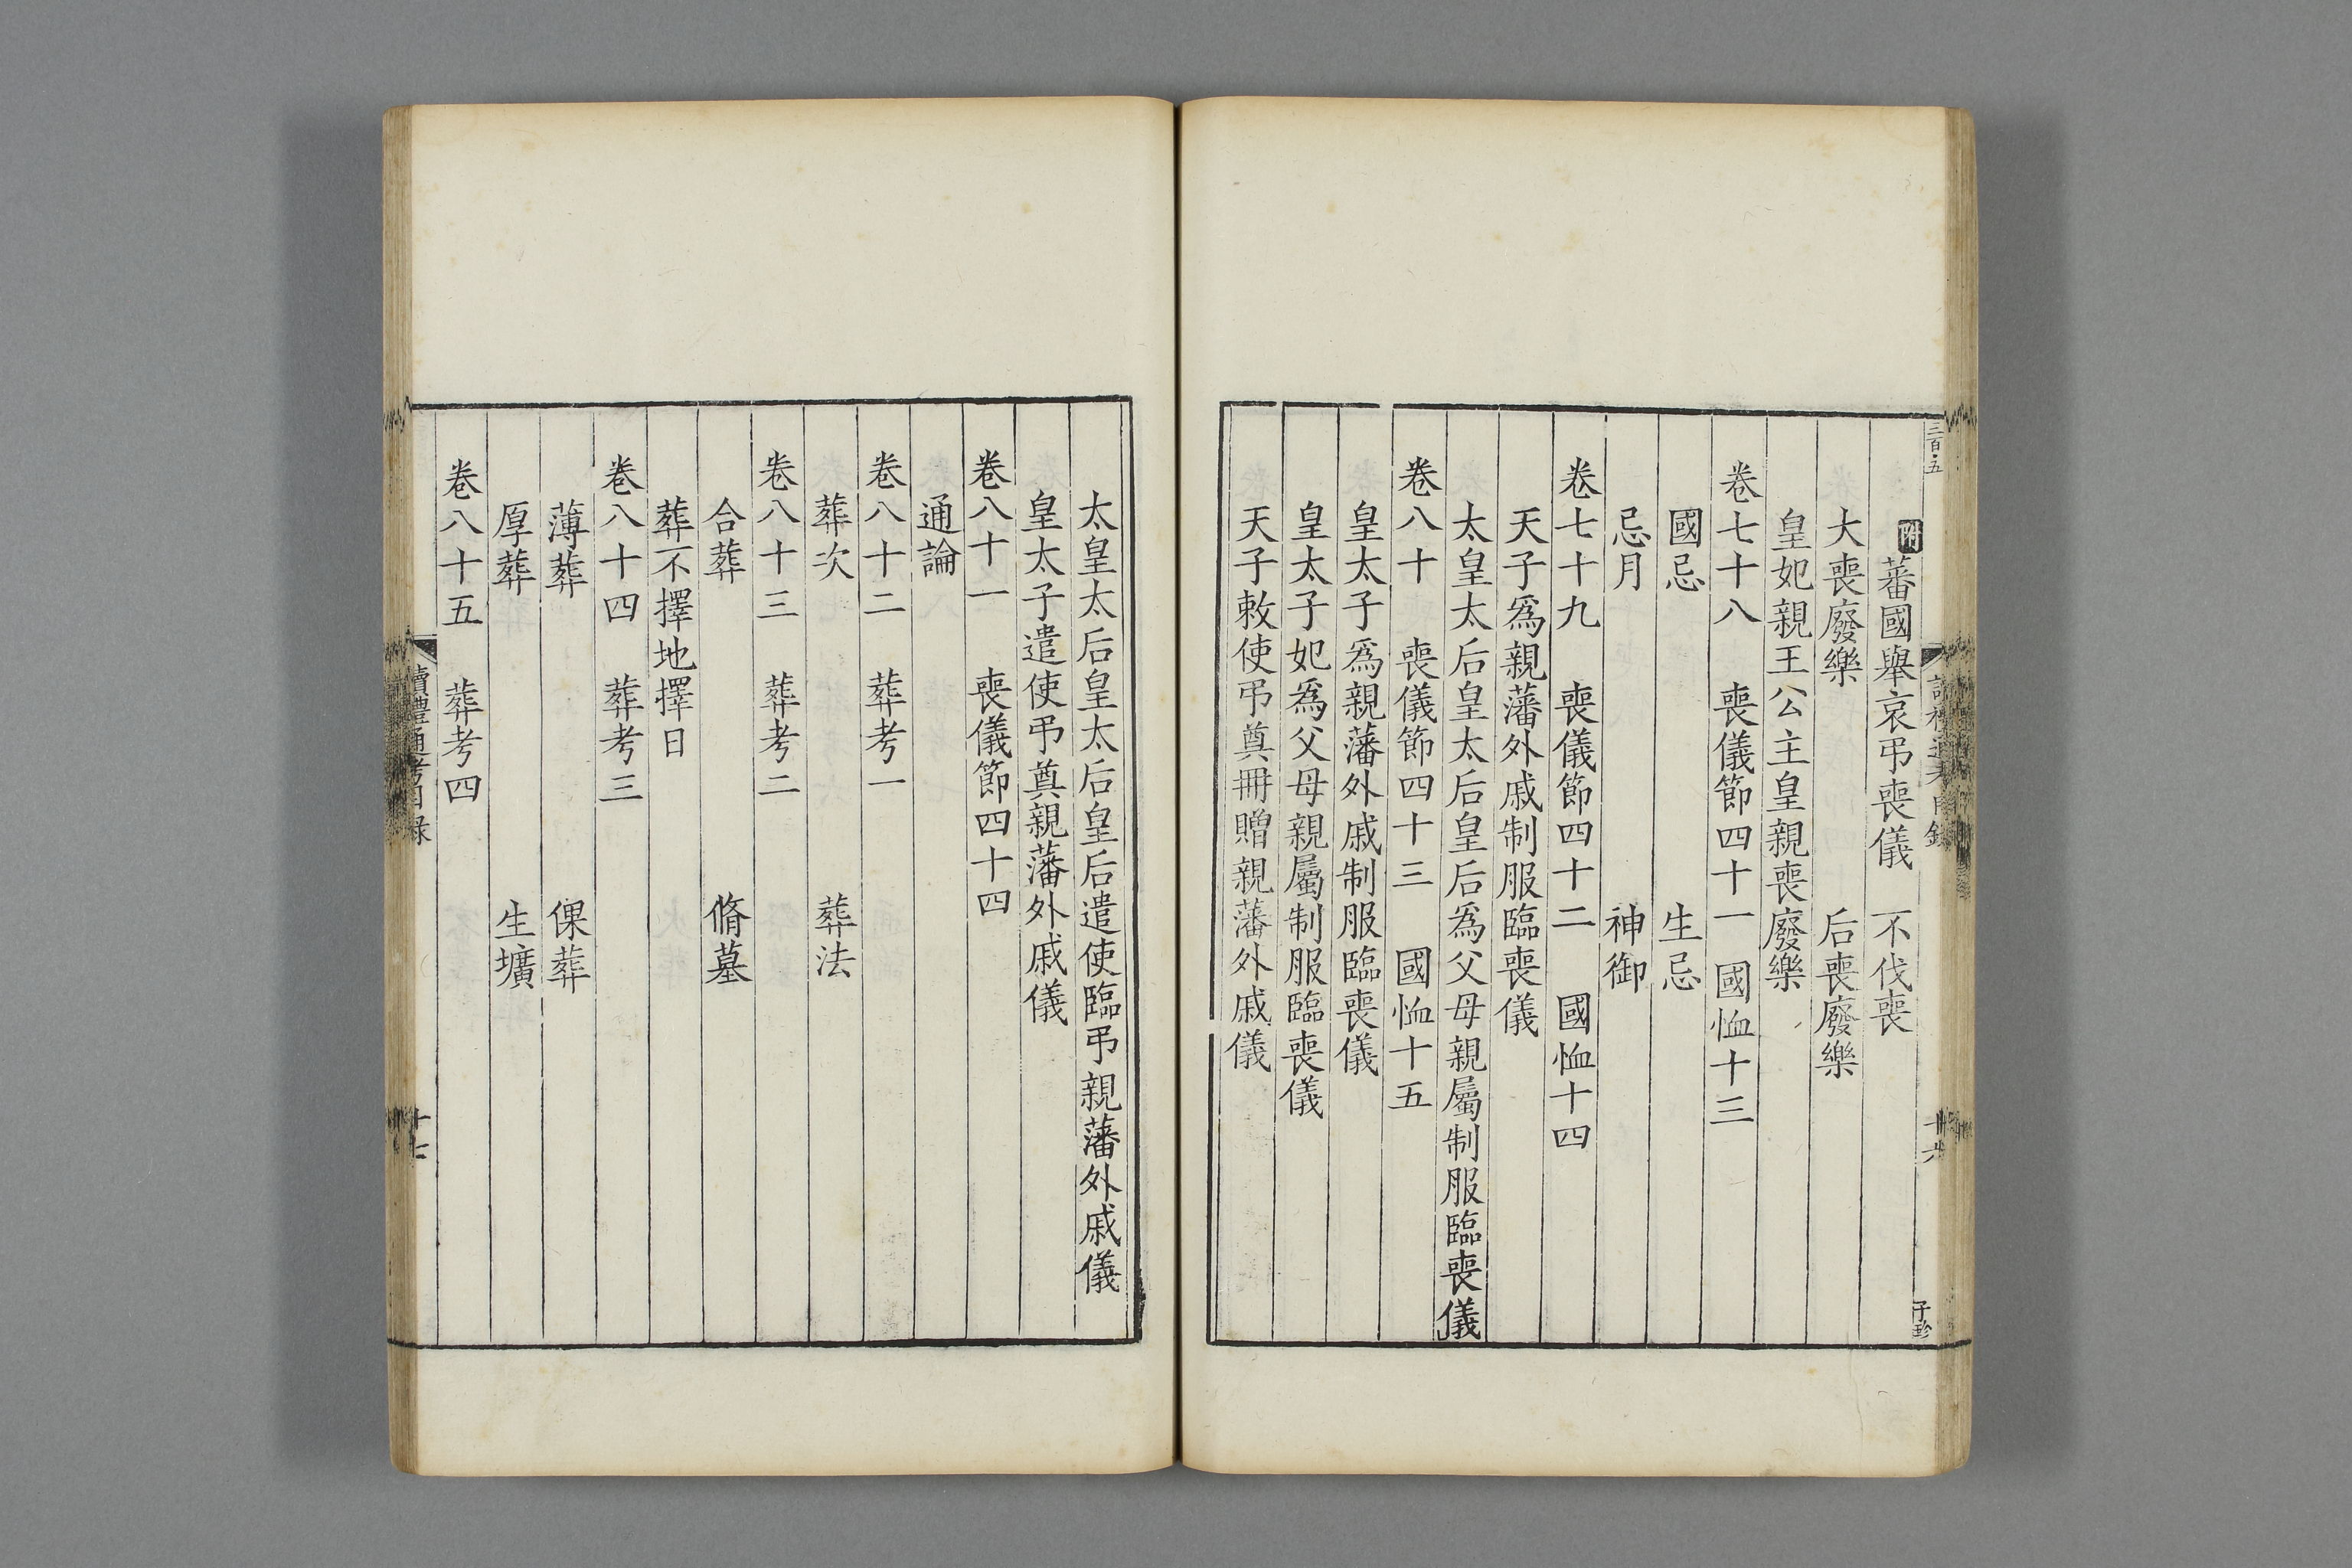 三百五
讀禮通考目錄
十六
子珍
附 蕃國舉哀弔喪儀 不伐喪
大喪廢樂 后喪廢樂
皇妃親王公主皇親喪廢樂
卷七十八 喪儀節四十一 國恤十三
國忌 生忌
忌月 神御
卷七十九 喪儀節四十二 國恤十四
天子爲親藩外戚制服臨喪儀
太皇太后皇太后皇后爲父母親屬制服臨喪儀
卷八十 喪儀節四十三 國恤十五
皇太子爲親藩外戚制服臨喪儀
皇太子妃爲父母親屬制服臨喪儀
天子敕使弔奠冊贈親藩外戚儀
太皇太后皇太后皇后遣使臨弔親藩外戚儀
皇太子遣使弔奠親藩外戚儀
卷八十一 喪儀節四十四
通論
卷八十二 葬考一
葬次 葬法
卷八十三 葬考二
合葬 脩墓
葬不擇地擇日
卷八十四 葬考三
薄葬 倮葬
厚葬 生壙
卷八十五 葬考四
讀禮通考目錄
十七